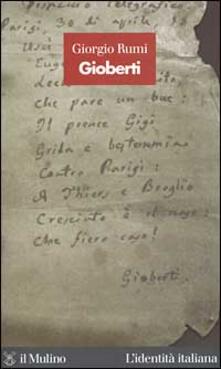 Dispaccio telegrafico
Parigi, 30 di aprile,
Giorgio Rumi
Gioberti
che pare un bue:
Il prence Gigi
Grida e bestemmia
Contro Parigi:
A Thiers e Broglio
Cresciuto è il naso:
Che fiero caso!
Gioberti.
il Mulino
L'identità italiana